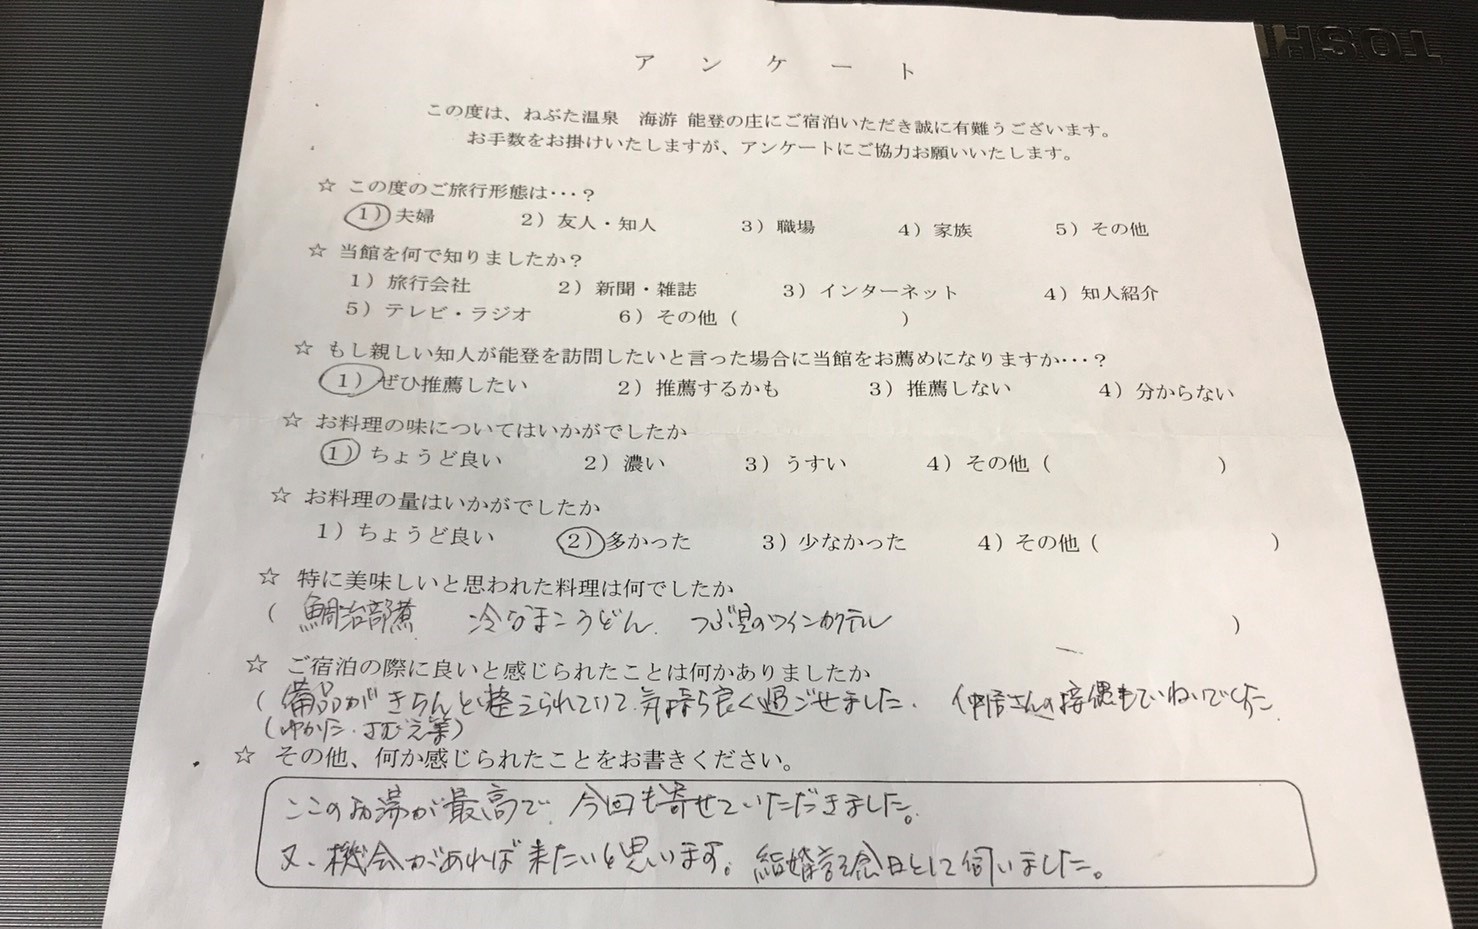 TOSHI
アンケート
この度は、ねぶた温泉　海游 能登の庄にご宿泊いただき誠に有難うございます。
お手数をお掛けいたしますが、アンケートにご協力お願いいたします。
☆ この度のご旅行形態は・・・？
1）夫婦　2）友人・知人　3）職場　4）家族　5）その他
☆ 当館を何で知りましたか？
1）旅行会社　2）新聞・雑誌　3）インターネット　4）知人紹介
5）テレビ・ラジオ　6）その他（　　　）
☆ もし親しい知人が能登を訪問したいと言った場合に当館をお薦めになりますか・・・？
1）ぜひ推薦したい　2）推薦するかも　3）推薦しない　4）分からない
☆ お料理の味についてはいかがでしたか
1）ちょうど良い　2）濃い　3）うすい　4）その他（　　　）
☆ お料理の量はいかがでしたか
1）ちょうど良い　2）多かった　3）少なかった　4）その他（　　　）
☆ 特に美味しいと思われた料理は何でしたか
（ 鯛治部煮　冷なまこうどん、　つぶ貝のワインカクテル　）
☆ ご宿泊の際に良いと感じられたことは何かありましたか
（ 備品がきちんと整えられていて、気持ち良く過ごせました。　仲居さんの接遇もていねいでした
（ゆかた、等）
☆ その他、何か感じられたことをお書きください。
ここのお湯が最高で、今回も寄せていただきました。
又、機会があれば来たいと思います。結婚記念日として伺いました。